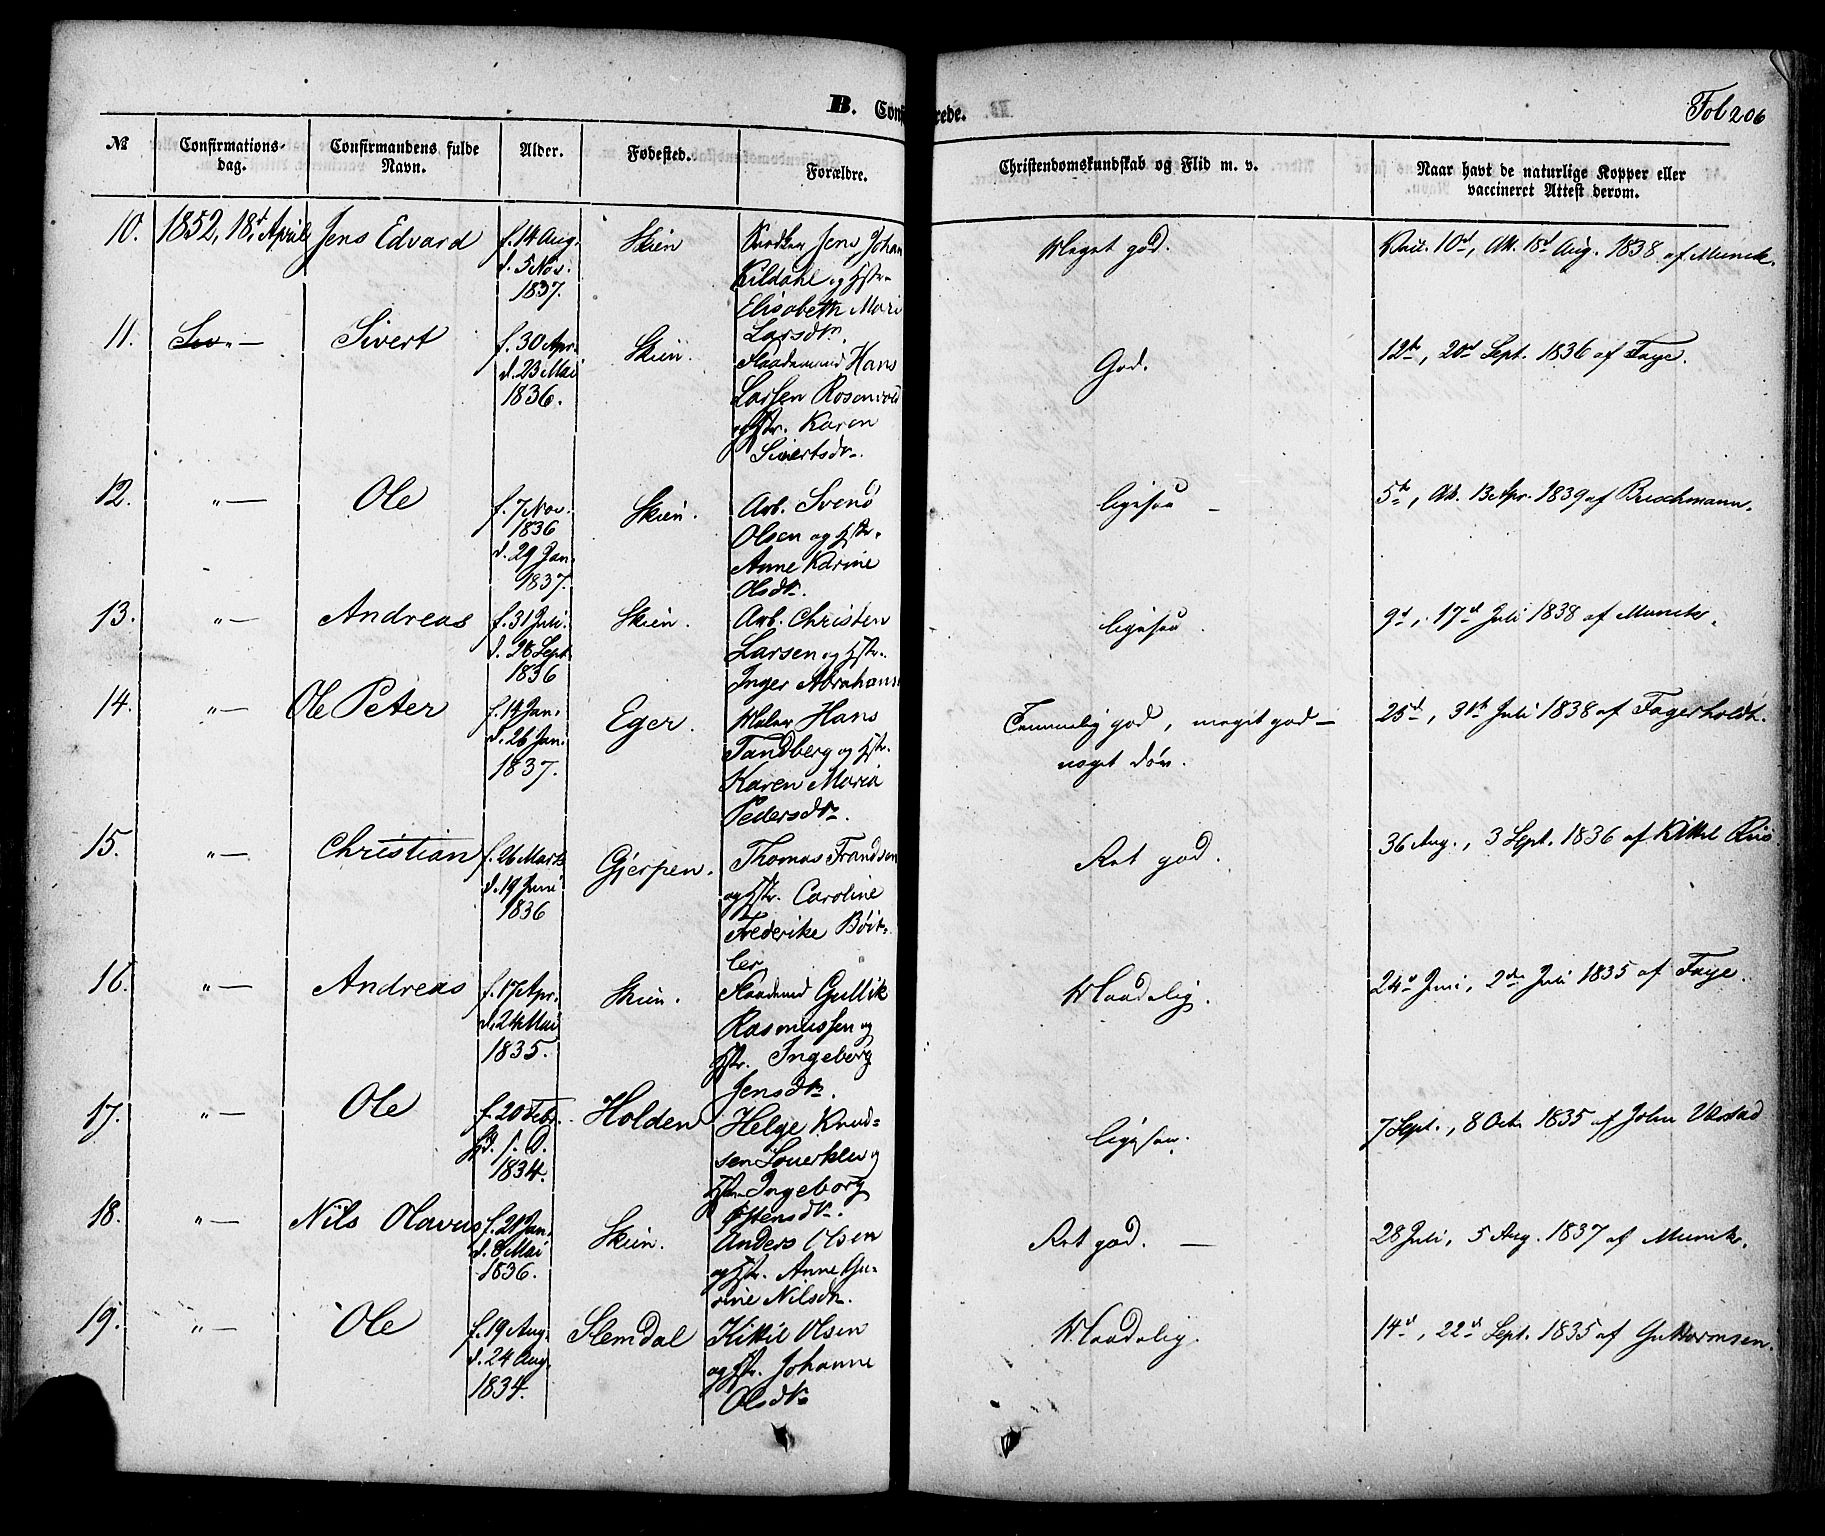 B. Conf rede.
Fol 206
№
Confirmations-
dag.
Confirmandens fulde
Navn.
Alder.
Fødested.
Forældre.
Christendomskundskab og Flid m. v.
Naar havt de naturlige Kopper eller
vaccineret Attest derom.
10.
1852, 18d April
Jens Edvard
f. 14 Aug.
d. 5 Nov.
1837.
Skien
Jens Johan
Kildahl og Hstr.
Elisabeth Mari
Larsdtr.
Meget god.
10d, Att. 18d Aug. 1838 af Munck.
11.
"—
Sivert
f. 30 Apr.
d. 23 Mai
1836.
Skien.
Hans
Larsen Rosenvold
og Hstr. Karen
Sivertsdtr.
God.
12te, 20d Sept. 1836 af Faye.
12.
"—
Ole
f. 7 Nov.
1836
d. 29 Jan.
1837.
Skien.
Arb. Svenø
Olsen og Hstr.
Anne Karine
Olsdtr.
ligesaa —
5te, Att. 13 Apr. 1839 af Bruchmann.
13.
"—
Andreas
f. 31 Juli.
d. 26 Sept.
1836
Skien.
Arb. Christen
Larsen og Hstr.
Inger Abrahams
ligesaa.
9d, 17d Juli 1838 af Munck.
14.
"—
Ole Peter
f. 14 Jan.
d. 26 Jan.
1837.
Eger.
Maler Hans
Tandberg og Hstr.
Karen Maria
Pedersdtr.
Temmelig god, meget god —
noget døv.
25d, 31te Juli 1838 af Fagerholdt.
15.
"—
Christian
f. 26 Marts
d. 19 Juni
1836
Gjerpen.
Thomas Frandsen
og Hstr. Caroline
Frederike Bøit-
ler
Ret god.
36 Aug., 3 Sept. 1836 af Kittil Riis
16.
"—
Andreas
f. 17 Apr.
d. 24 Mai
1835.
Skien.
Gullik
Rasmussen og
Hstr. Ingeborg
Jensdtr.
Maadelig.
24d Juni, 2den Juli 1835 af Faye.
17.
"—
Ole
f. 20 Febr.
Hd. s. D.
1834.
Holden
Helge Knud-
sen og
Hstr. Ingeborg
Østensdtr.
ligesaa.
7 Sept., 8 Octr 1835 af John Væstad
18.
"—
Nils Olavus
f. 21 Jan.
d. 8 Mai
1836.
Skien.
Anders Olsen
og Hstr. Anne Gu-
rine Nilsdtr.
Ret god. —
28 Juli, 5 Aug. 1837 af Munck.
19.
"—
Ole
f. 19 Aug.
d. 24 Aug.
1834.
Slemdal
Kittil Olsen
og Hstr. Johanne
Olsdtr
Maadelig.
14d, 22d Sept. 1835 af Guttormsen.